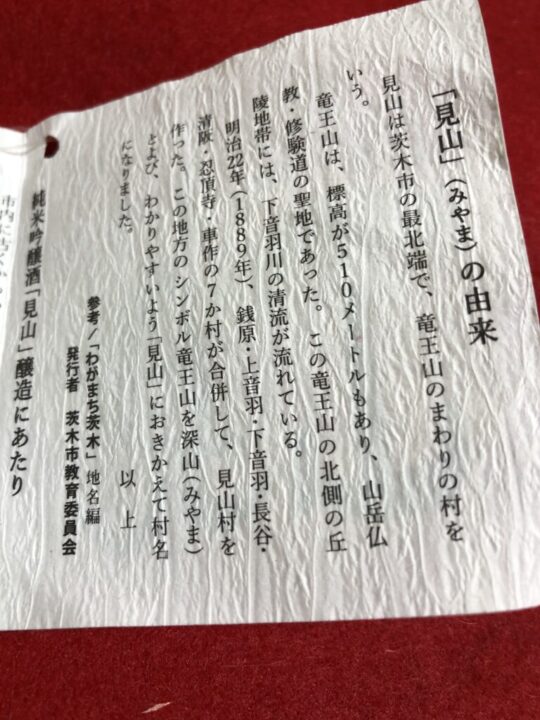 「見山」（みやま）の由来
見山は茨木市の最北端で、竜王山のまわりの村を
いう。
竜王山は、標高が510メートルもあり、山岳仏
教・修験道の聖地であった。この竜王山の北側の丘
陵地帯には、下音羽川の清流が流れている。
明治22年（1889年）、銭原・上音羽・下音羽・長谷・
清阪・忍頂寺・車作の7か村が合併して、見山村を
作った。この地方のシンボル竜王山を深山（みやま）
とよび、わかりやすいよう「見山」におきかえて村名
になりました。
以上
参考／「わがまち茨木」地名編
発行者 茨木市教育委員会
純米吟醸酒「見山」醸造にあたり